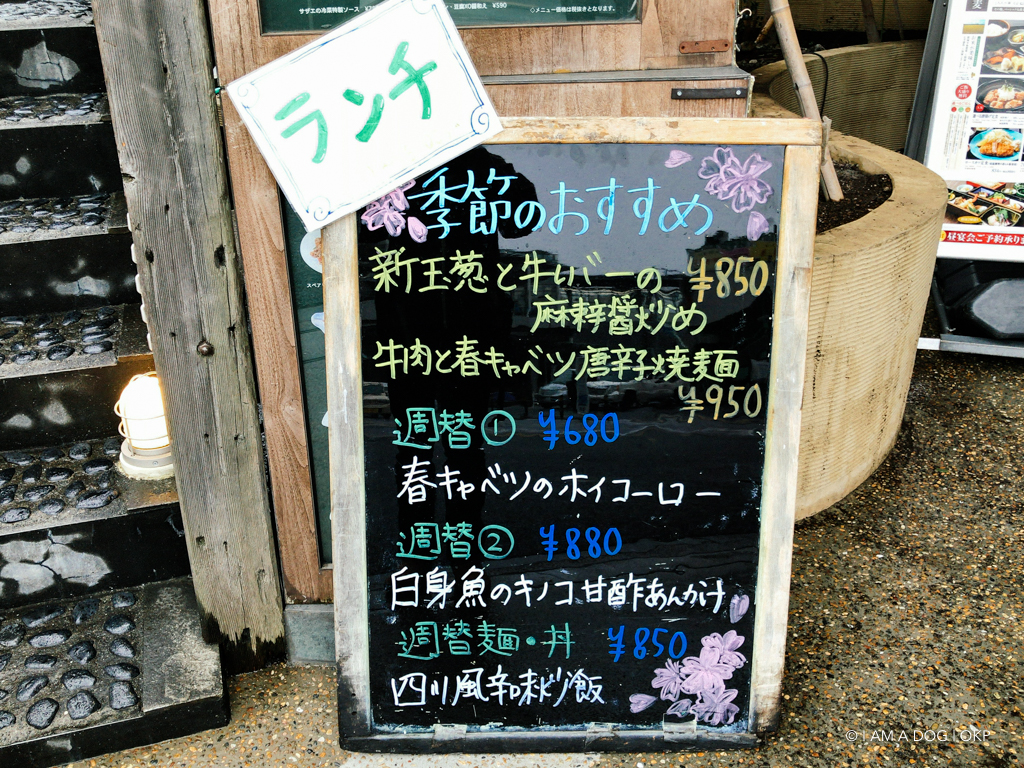 サザエの冷菜特製ソース
豆腐XO醤和え ¥590
◇メニュー価格は税抜きとなります。
ランチ
季節のおすすめ
新玉葱と牛レバーの ¥850
麻辣醤炒め
牛肉と春キャベツ唐辛子焼麺
¥950
週替① ¥680
春キャベツのホイコーロー
週替② ¥880
白身魚のキノコ甘酢あんかけ
週替麺・丼 ¥850
四川風辛味ドリ飯
昼宴会ご予約承り
© I AM A DOG | OKP